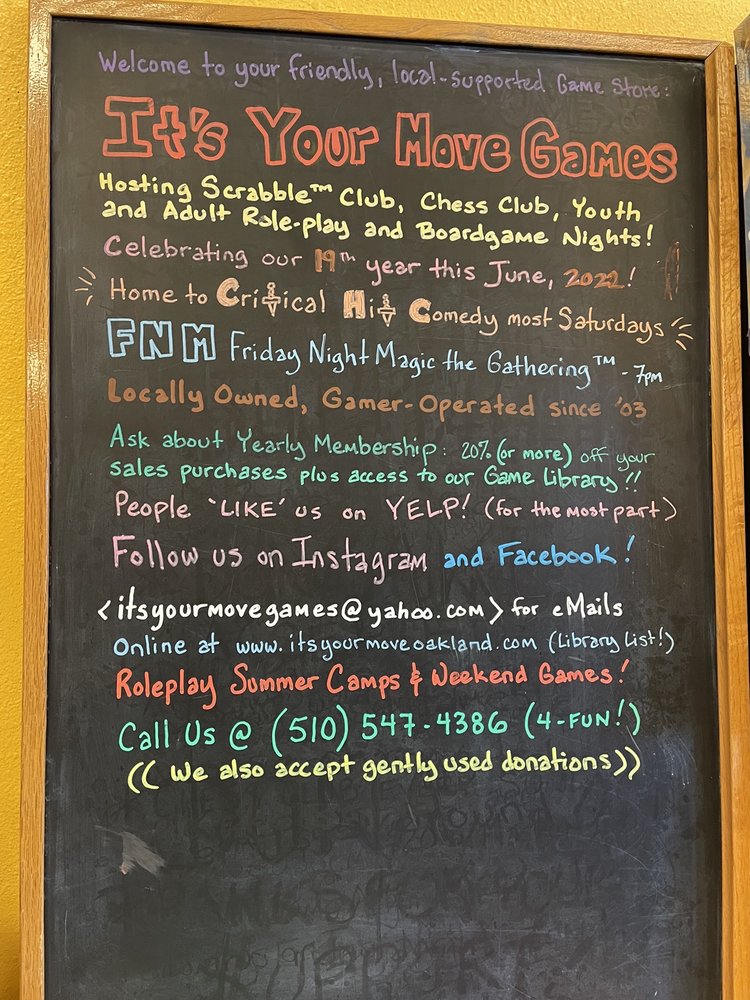 Welcome to your friendly, local-supported Game Store:
It's Your Move Games
Hosting Scrabble™ Club, Chess Club, Youth
and Adult Role-play and Boardgame Nights!
Celebrating our 19th year this June, 2022!
Home to Critical Hit Comedy most Saturdays
FNM Friday Night Magic the Gathering™ - 7pm
Locally Owned, Gamer-Operated since '03
Ask about Yearly Membership: 20% (or more) off your
sales purchases plus access to our Game Library!!
People 'LIKE' us on YELP! (for the most part)
Follow us on Instagram and Facebook!
<itsyourmovegames@yahoo.com> for eMails
Online at www.itsyourmoveoakland.com (Library List!)
Roleplay Summer Camps & Weekend Games!
Call Us @ (510) 547-4386 (4-FUN!)
(( We also accept gently used donations))